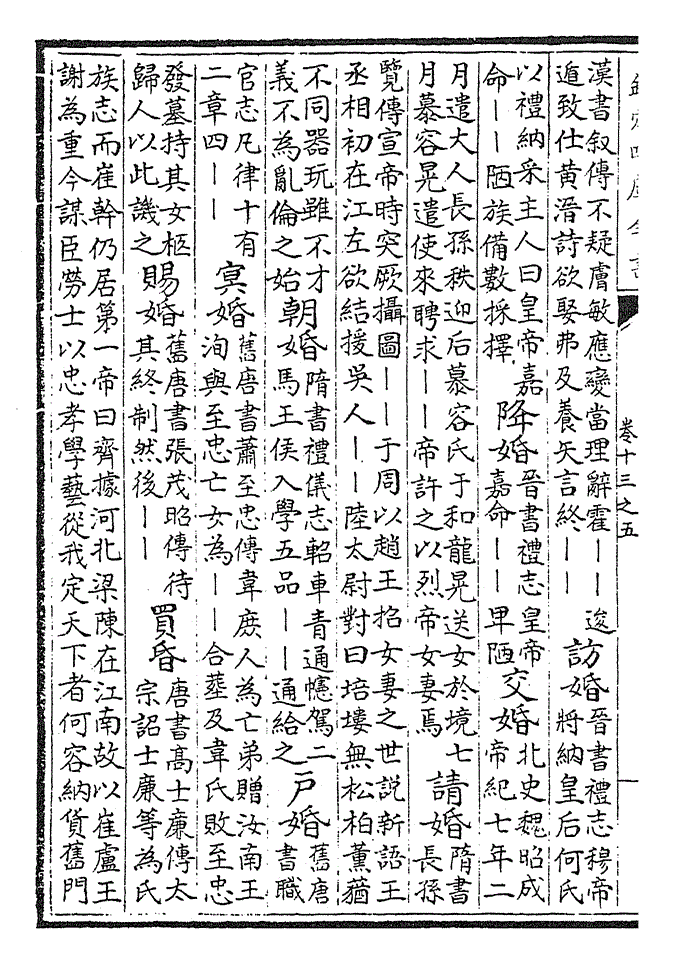 欽定四庫全書
卷十三之五
漢書叙傳不疑膚敏應變當理辭霍——逡
遁致仕黄溍詩欲娶弗及養矢言終——
訪婚
晉書禮志穆帝
將納皇后何氏
以禮納采主人曰皇帝嘉
命——陋族備數採擇
降婚
晉書禮志皇帝
嘉命——卑陋
交婚
北史魏昭成
帝紀七年二
月遣大人長孫秩迎后慕容氏于和龍晃送女於境七
月慕容晃遣使來聘求——帝許之以烈帝女妻焉
請婚
隋書
長孫
覽傳宣帝時突厥攝圖——于周以趙王招女妻之世說新語王
丞相初在江左欲結援吳人——陸太尉對曰培塿無松柏薰蕕
不同器玩雖不才
義不為亂倫之始
朝婚
隋書禮儀志軺車青通幰駕二
馬王侯入學五品——通給之
戸婚
舊唐
書職
官志凡律十有
二章四——
㝠婚
舊唐書蕭至忠傳韋庶人為亡弟贈汝南王
洵與至忠亡女為——合葬及韋氏敗至忠
發墓持其女柩
歸人以此譏之
賜婚
舊唐書張茂昭傳待
其終制然後——
買昏
唐書高士廉傳太
宗詔士廉等為氏
族志而崔幹仍居第一帝曰齊據河北梁陳在江南故以崔盧王
謝為重今謀臣勞士以忠孝學藝從我定天下者何容納貨舊門